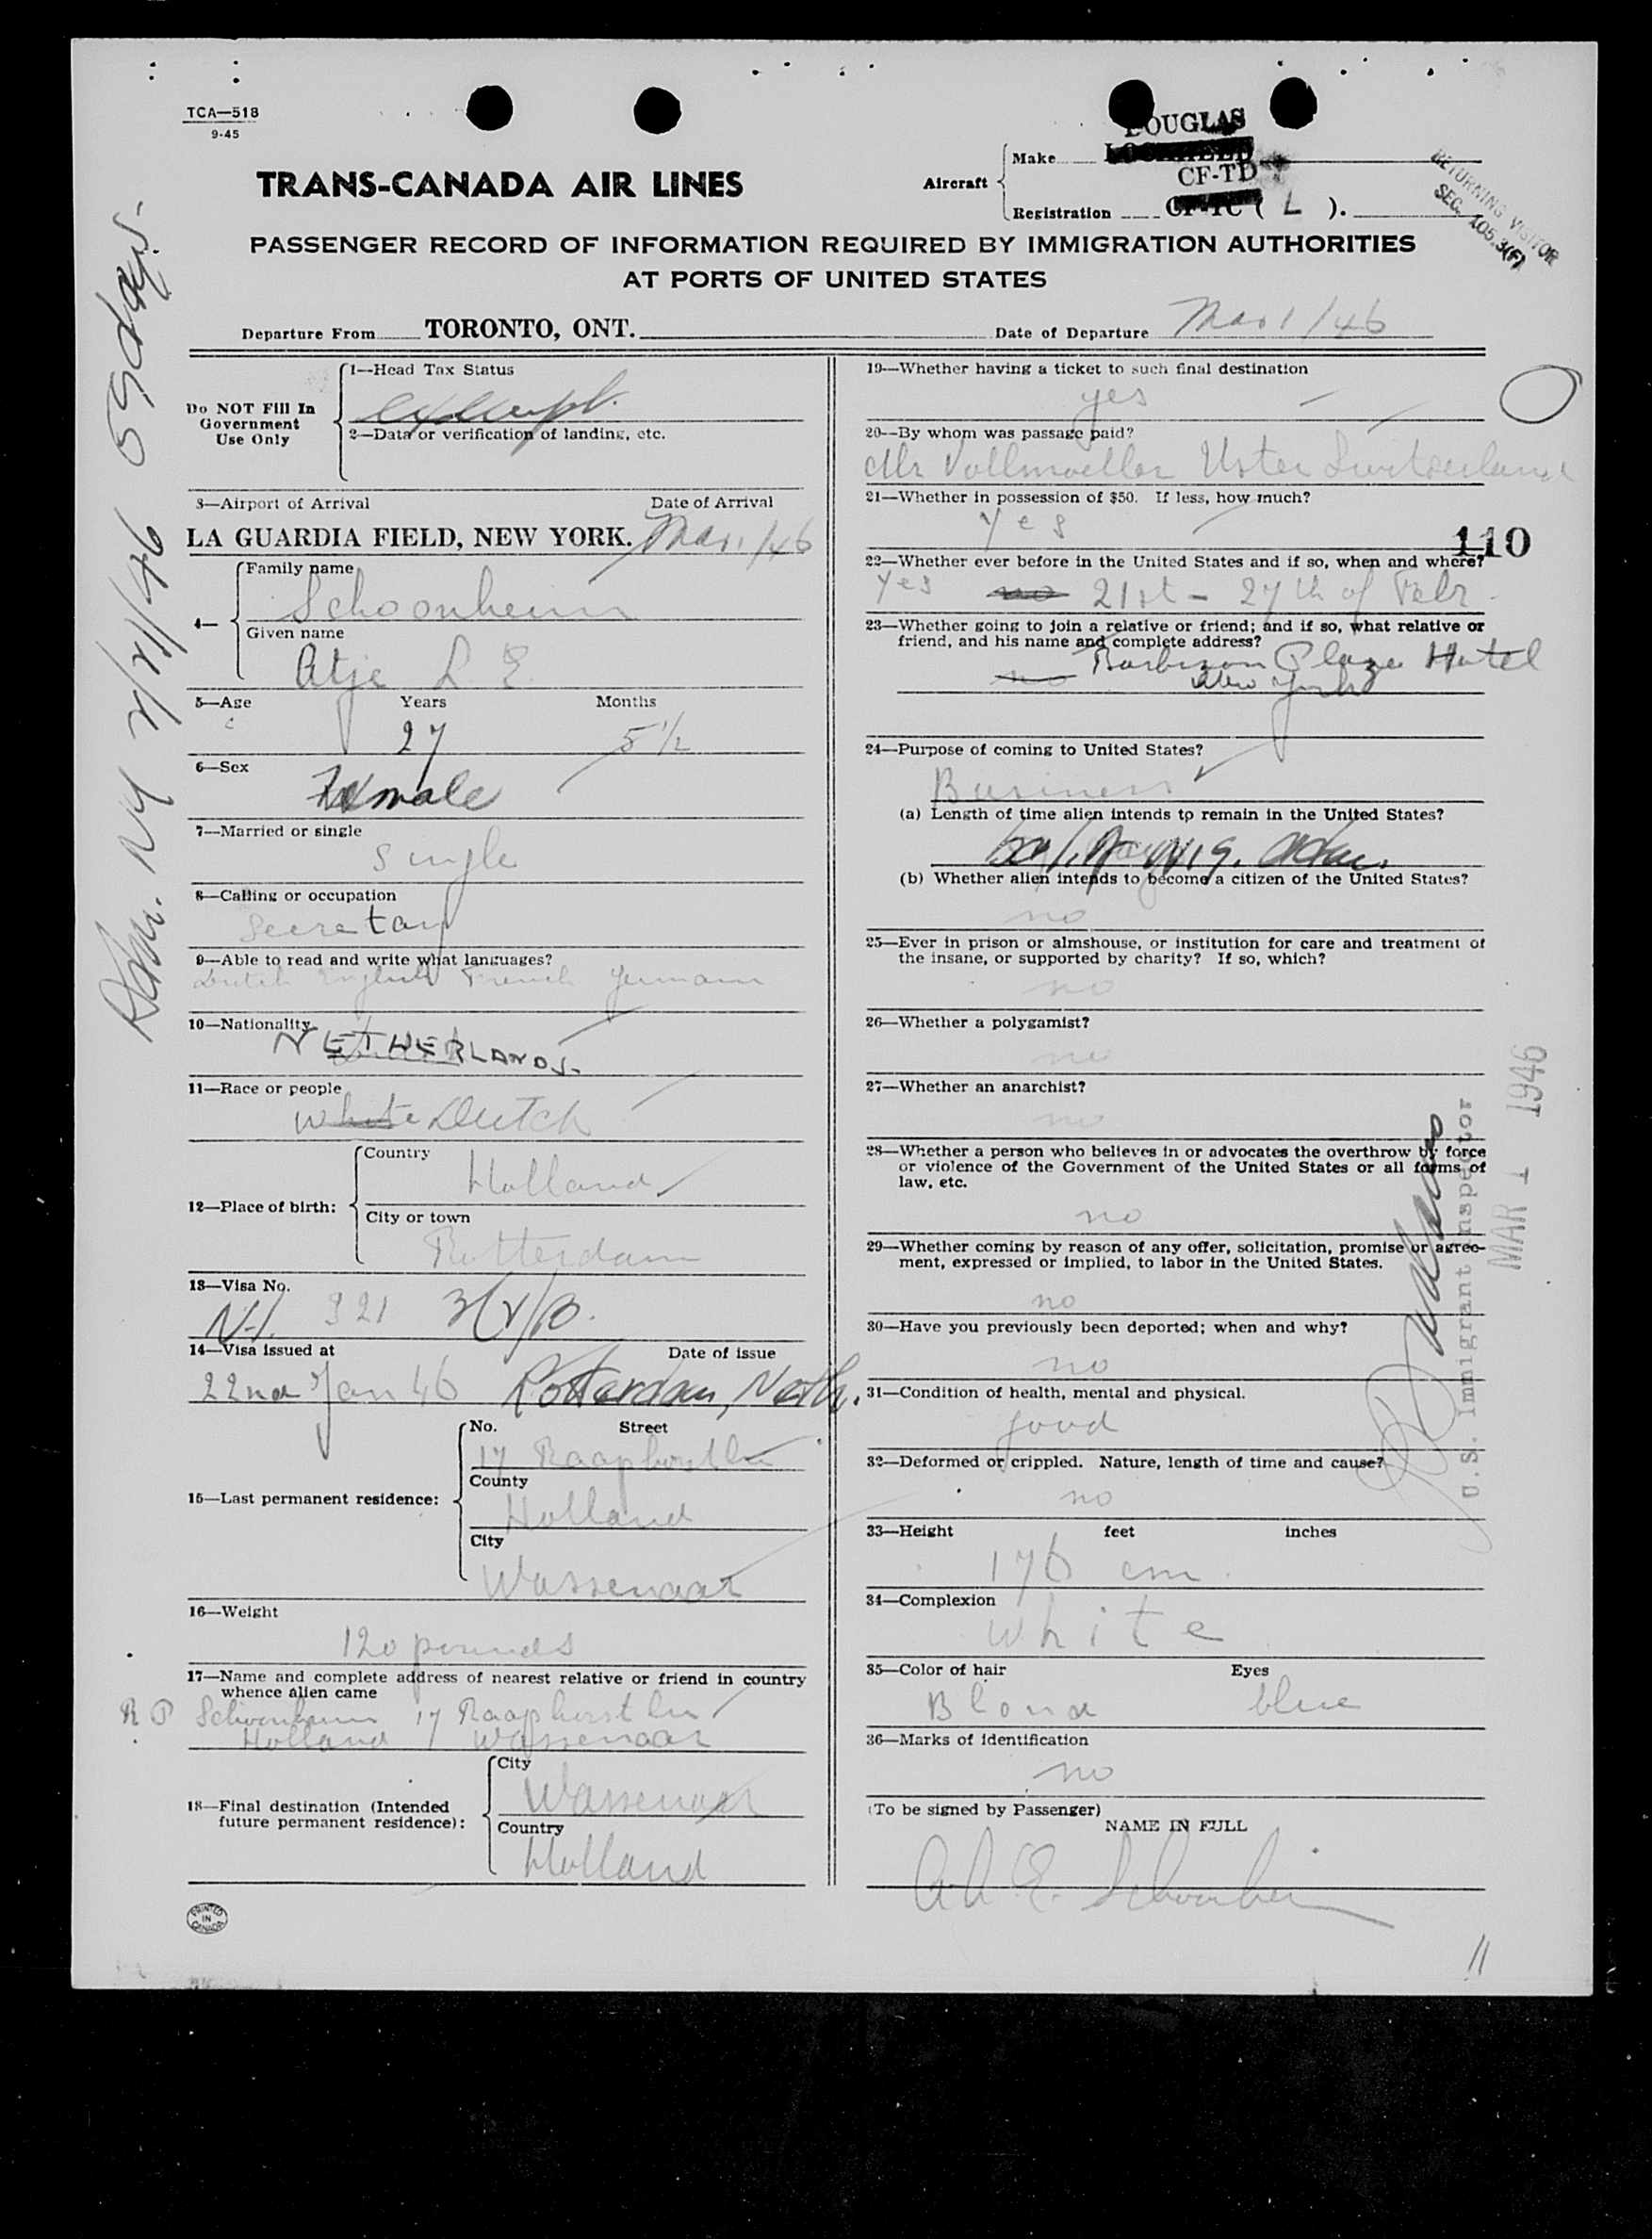 TCA—518
9-45
TRANS-CANADA AIR LINES
Aircraft
Make
DOUGLAS
LOCKHEED
CF-TD
Registration CF-TC ( L ).
RETURNING VISITOR
SEC. 105.3(F)
PASSENGER RECORD OF INFORMATION REQUIRED BY IMMIGRATION AUTHORITIES
AT PORTS OF UNITED STATES
Departure From TORONTO, ONT. Date of Departure Mar 1/46
Do NOT Fill In
Government
Use Only
1—Head Tax Status
exempt.
2—Data or verification of landing, etc.
3—Airport of Arrival Date of Arrival
LA GUARDIA FIELD, NEW YORK. Mar. 1/46
4—
Family name
Schoonheim
Given name
Atje L. E.
5—Age Years Months
27 5½
6—Sex
Female
7—Married or single
single
8—Calling or occupation
Secretary
9—Able to read and write what languages?
Dutch English French German
10—Nationality
NETHERLANDS.
11—Race or people
White Dutch
12—Place of birth:
Country
Holland
City or town
Rotterdam
13—Visa No.
321
14—Visa issued at Date of issue
22nd Jan 46 Rotterdam, Neth.
15—Last permanent residence:
No. Street
17 Raaphorstln
County
Holland
City
Wassenaar
16—Weight
120 pounds
17—Name and complete address of nearest relative or friend in country
whence alien came
R P Schoonheim 17 Raaphorstln
Holland Wassenaar
18—Final destination (Intended
future permanent residence):
City
Wassenaar
Country
Holland
PRINTED
IN
CANADA
19—Whether having a ticket to such final destination
yes
20—By whom was passage paid?
Mr Vollmoeller Uster Switzerland
21—Whether in possession of $50. If less, how much?
Yes
110
22—Whether ever before in the United States and if so, when and where?
Yes no 21st - 27th of Febr.
23—Whether going to join a relative or friend; and if so, what relative or
friend, and his name and complete address?
no Barbizon Plaza Hotel
New York
24—Purpose of coming to United States?
Business
(a) Length of time alien intends to remain in the United States?
(b) Whether alien intends to become a citizen of the United States?
no
25—Ever in prison or almshouse, or institution for care and treatment of
the insane, or supported by charity? If so, which?
no
26—Whether a polygamist?
no
27—Whether an anarchist?
no
28—Whether a person who believes in or advocates the overthrow by force
or violence of the Government of the United States or all forms of
law, etc.
no
29—Whether coming by reason of any offer, solicitation, promise or agree-
ment, expressed or implied, to labor in the United States.
no
30—Have you previously been deported; when and why?
no
31—Condition of health, mental and physical.
good
32—Deformed or crippled. Nature, length of time and cause?
no
33—Height feet inches
176 cm.
34—Complexion
white
35—Color of hair Eyes
Blond blue
36—Marks of identification
no
(To be signed by Passenger)
NAME IN FULL
A. L. E. Schoonheim
11
U.S. Immigrant Inspector
MAR 1 1946
Adm. NY 2/21/46 59 days.